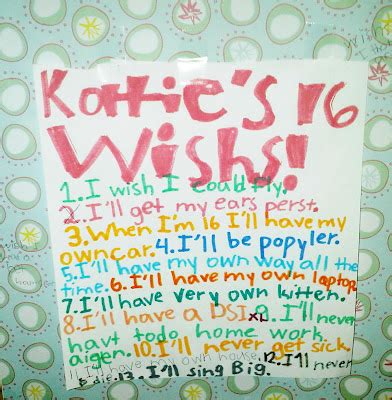 Katie's 16
Wishs!
1. I wish I could fly.
2. I'll get my ears perst.
3. When I'm 16 I'll have my
own car. 4. I'll be popyler.
5. I'll have my own way all the
time. 6. I'll have my own laptop
7. I'll have very own kitten.
8. I'll have a DSI XL 9. I'll never
havt todo home work
aigen. 10. I'll never get sick
11. I'll have my own house. 12. I'll never
die. 13. I'll sing Big.